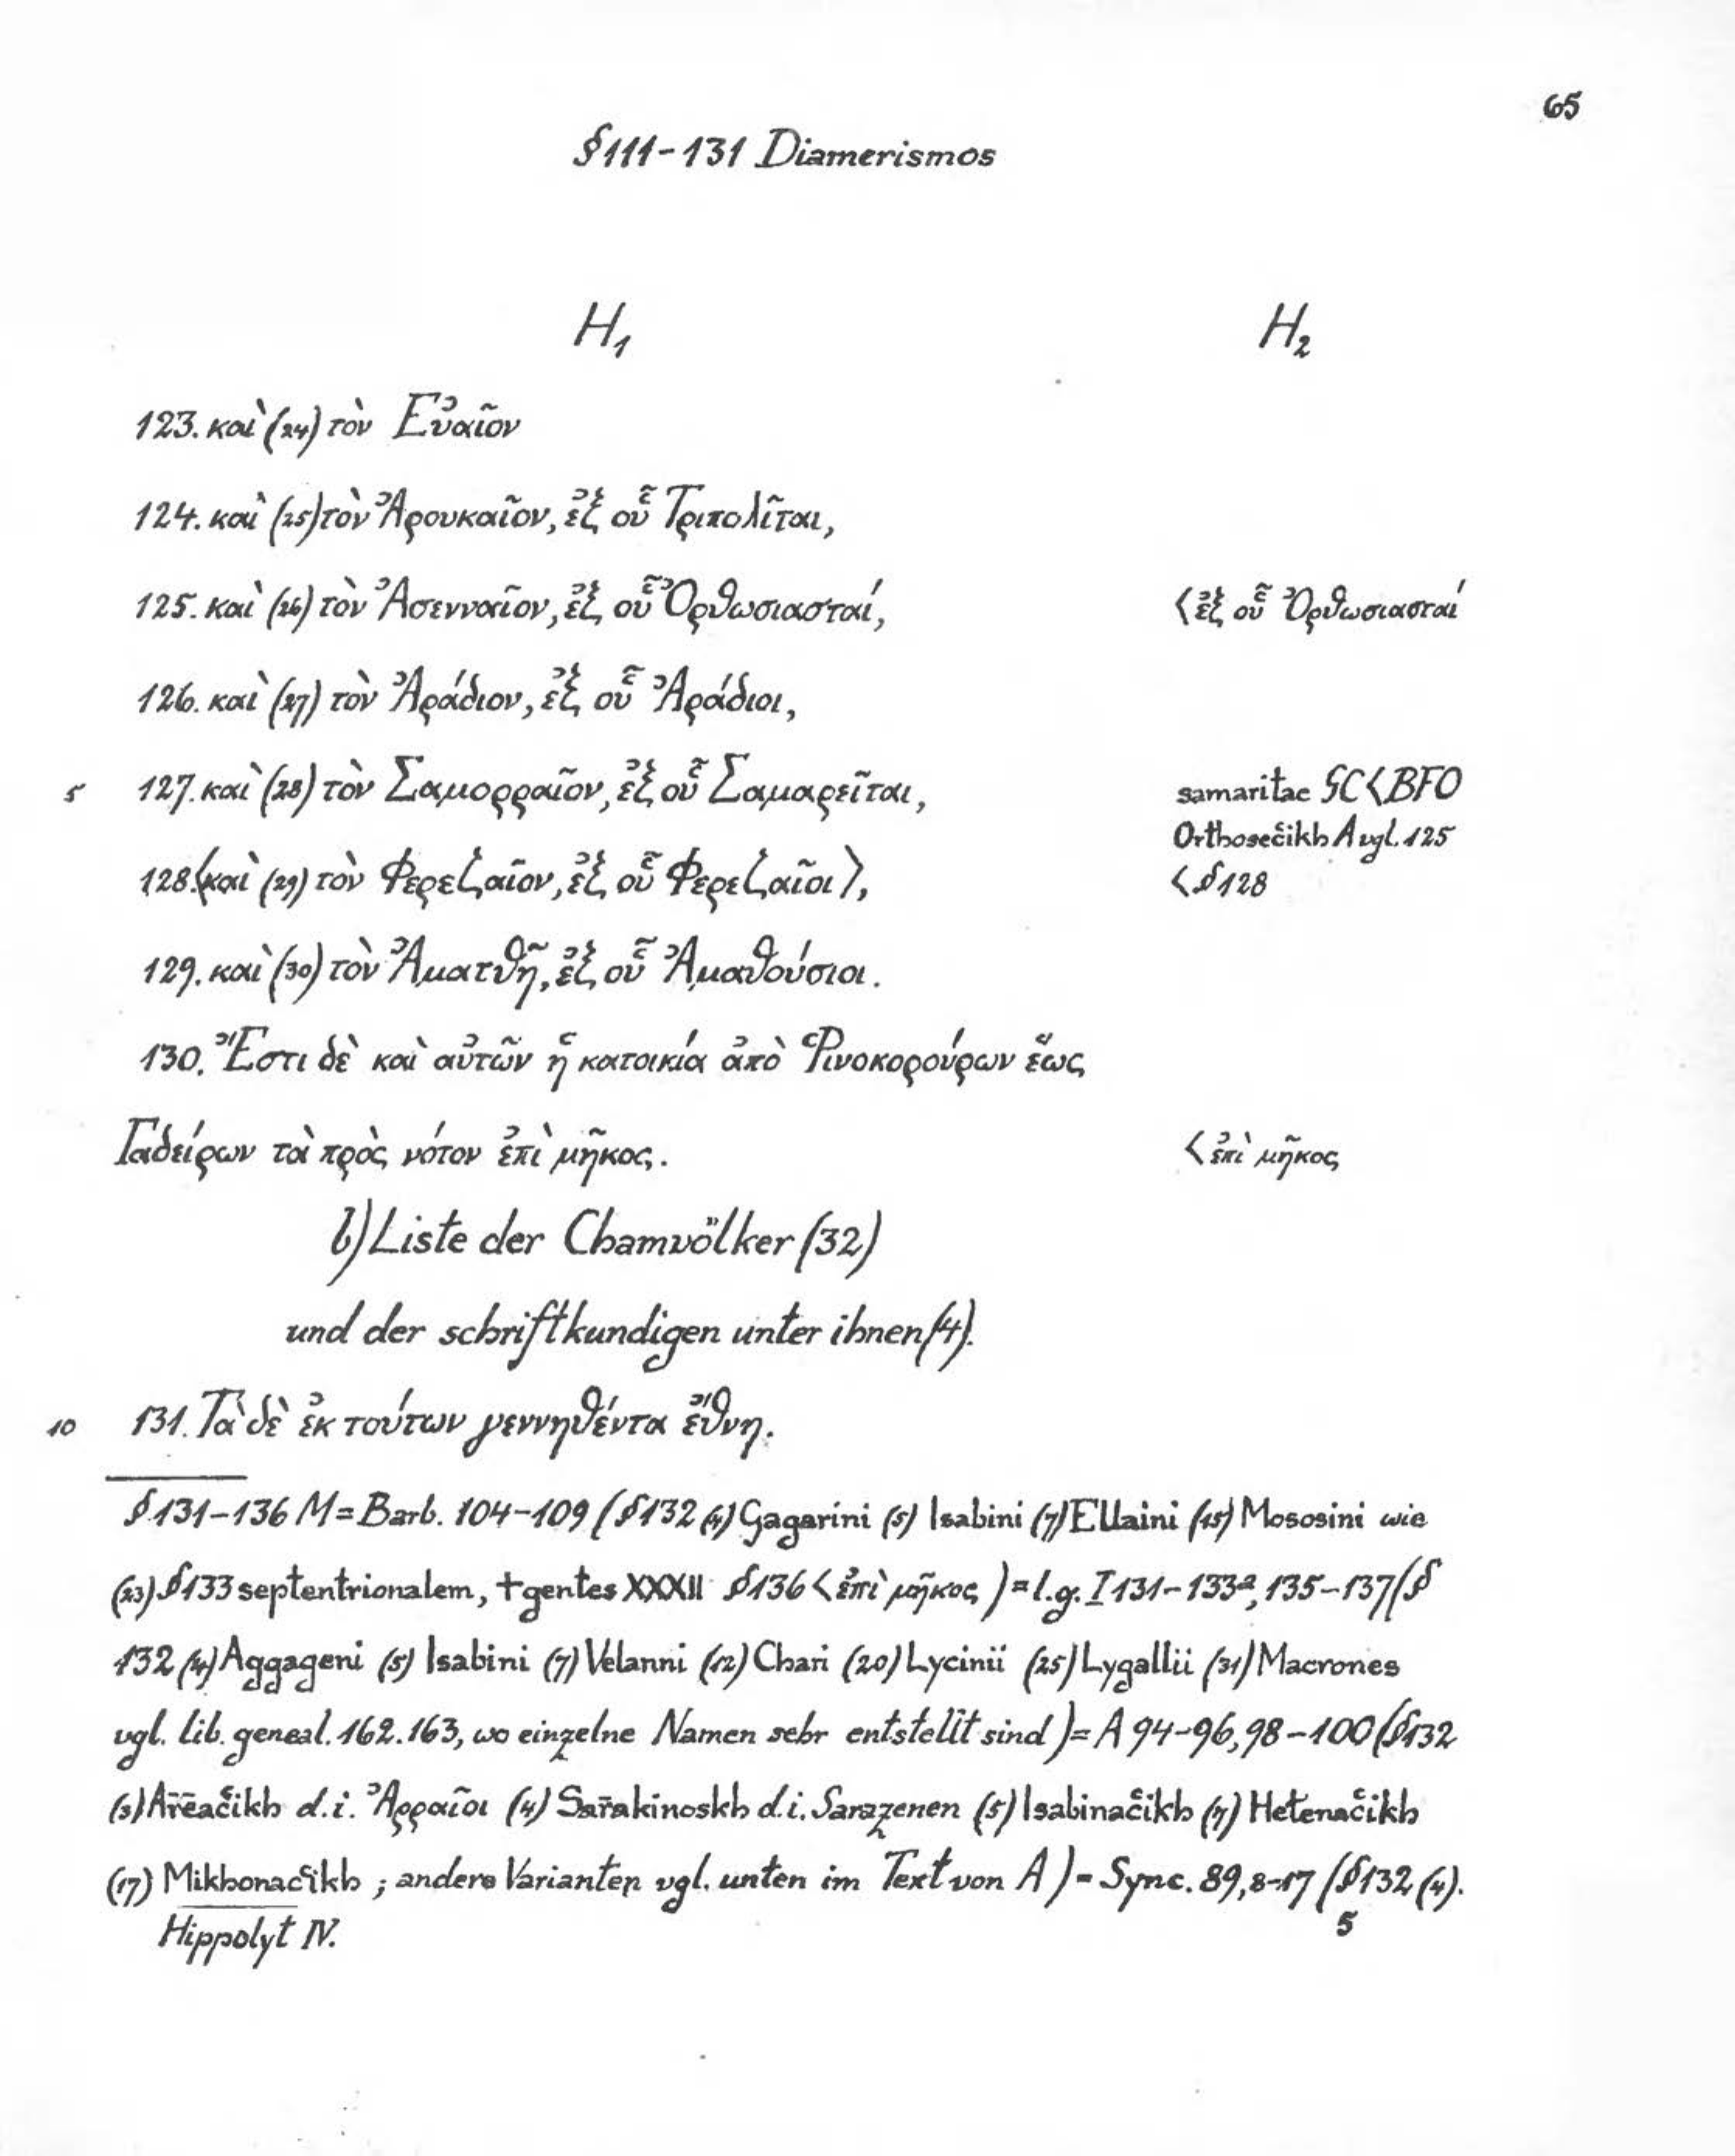 65
§111-131 Diamerismos
H₁ H₂
123. καὶ (24) τὸν Εὐαῖον
124. καὶ (25) τὸν Ἀρουκαῖον, ἐξ οὗ Τριπολῖται,
125. καὶ (26) τὸν Ἀσενναῖον, ἐξ οὗ Ὀρθωσιασταί, <ἐξ οὗ Ὀρθωσιασταί
126. καὶ (27) τὸν Ἀράδιον, ἐξ οὗ Ἀράδιοι,
5 127. καὶ (28) τὸν Σαμορραῖον, ἐξ οὗ Σαμαρεῖται, samaritae GC<BFO
Orthosečikh A vgl. 125
128. <καὶ (29) τὸν Φερεζαῖον, ἐξ οὗ Φερεζαῖοι>, <§128
129. καὶ (30) τὸν Ἀματθῆ, ἐξ οὗ Ἀμαθούσιοι.
130. Ἔστι δὲ καὶ αὐτῶν ἡ κατοικία ἀπὸ Ῥινοκορούρων ἕως
Γαδείρων τὰ πρὸς νότον ἐπὶ μῆκος. <ἐπὶ μῆκος
b) Liste der Chamvölker (32)
und der schriftkundigen unter ihnen (4).
10 131. Τὰ δὲ ἐκ τούτων γεννηθέντα ἔθνη.
§131-136 M = Barb. 104-109 (§132 (4) Gagarini (5) Isabini (7) Ellaini (15) Mososini wie
(23) §133 septentrionalem, +gentes XXXII §136 <ἐπὶ μῆκος) = l.g. I 131-133ᵃ, 135-137 (§
132 (4) Aggageni (5) Isabini (7) Velanni (12) Chari (20) Lycinii (25) Lygallii (31) Macrones
vgl. lib. geneal. 162.163, wo einzelne Namen sehr entstellt sind) = A 94-96, 98-100 (§132
(3) Ar̄ēačikh d.i. Ἀρραῖοι (4) Sar̄akinoskh d.i. Sarazenen (5) Isabinačikh (7) Hetenačikh
(17) Mikhonačikh; andere Varianten vgl. unten im Text von A) = Sync. 89,8-17 (§132 (4).
Hippolyt IV. 5